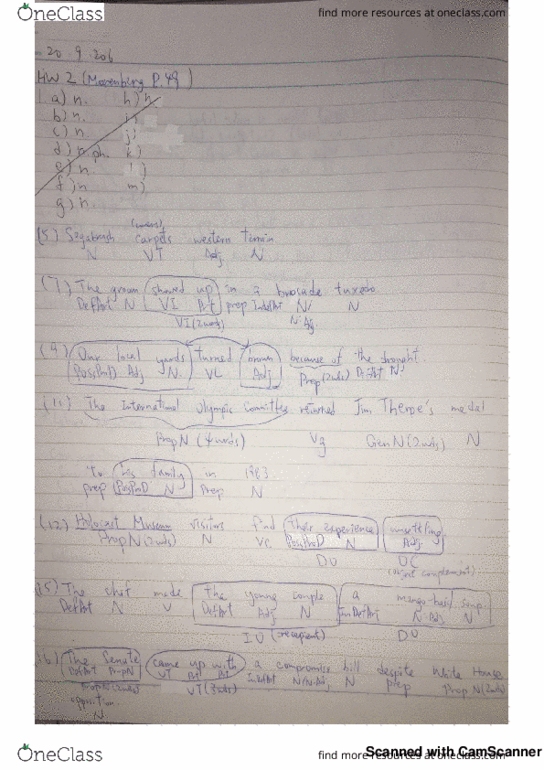 OneClass
find more resources at oneclass.com
20.9.201
HW 2 (Morenberg P.49)
1. a) n. h) n.
b) n. i)
c) n. j)
d) n. ph. k)
e) n l)
f) n m)
g) n.
(covers)
(5) Sagebrush carpets western terrain
N VT Adj N
(7) The groom showed up in a brocade tuxedo
DefArt N VI Prt prep IndefArt N/ N
VI (2wds) N:Adj
(9) Our local yards turned brown because of the drought.
PossPnD Adj N VL Adj Prep (2wds) DefArt N
(11) The International Olympic Committee returned Jim Thorpe's medal
PropN (4wds) Vg GenN (2wds) N
to his family in 1983.
prep PossPnD N Prep N
(12) Holocaust Museum visitors find their experience
PropN (2wds) N Vc PossPnD N Adj
DO OC
(object complement)
(15) The chef made the young couple a mango-basil soup
DefArt N V DefArt Adj N IndefArt N:Adj N
IO (recipient) DO
(16) The Senate came up with a compromise bill despite White House
DefArt PropN VT Prt Prt IndefArt N/N:Adj N prep Prop N (2wds)
PropN (2wds) VT (3wds)
opposition
N
OneClass
find more resources at oneclass.com
Scanned with CamScanner